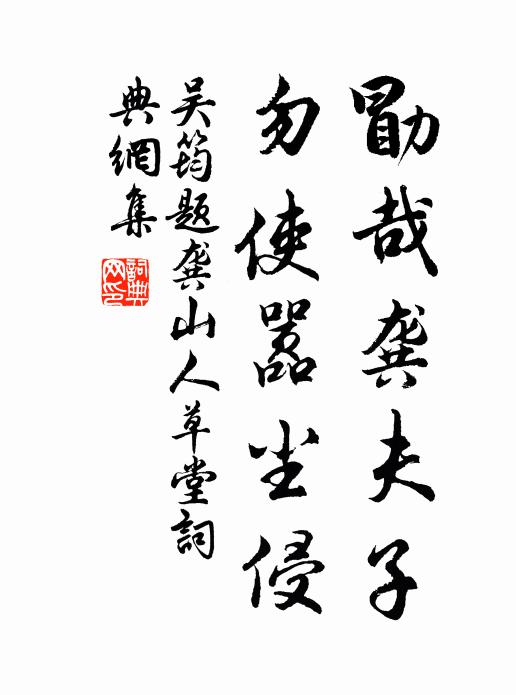 勖哉龚夫子
勿使嚣尘侵
吴筠题龚山人草堂詞
典網集
詞典
网印